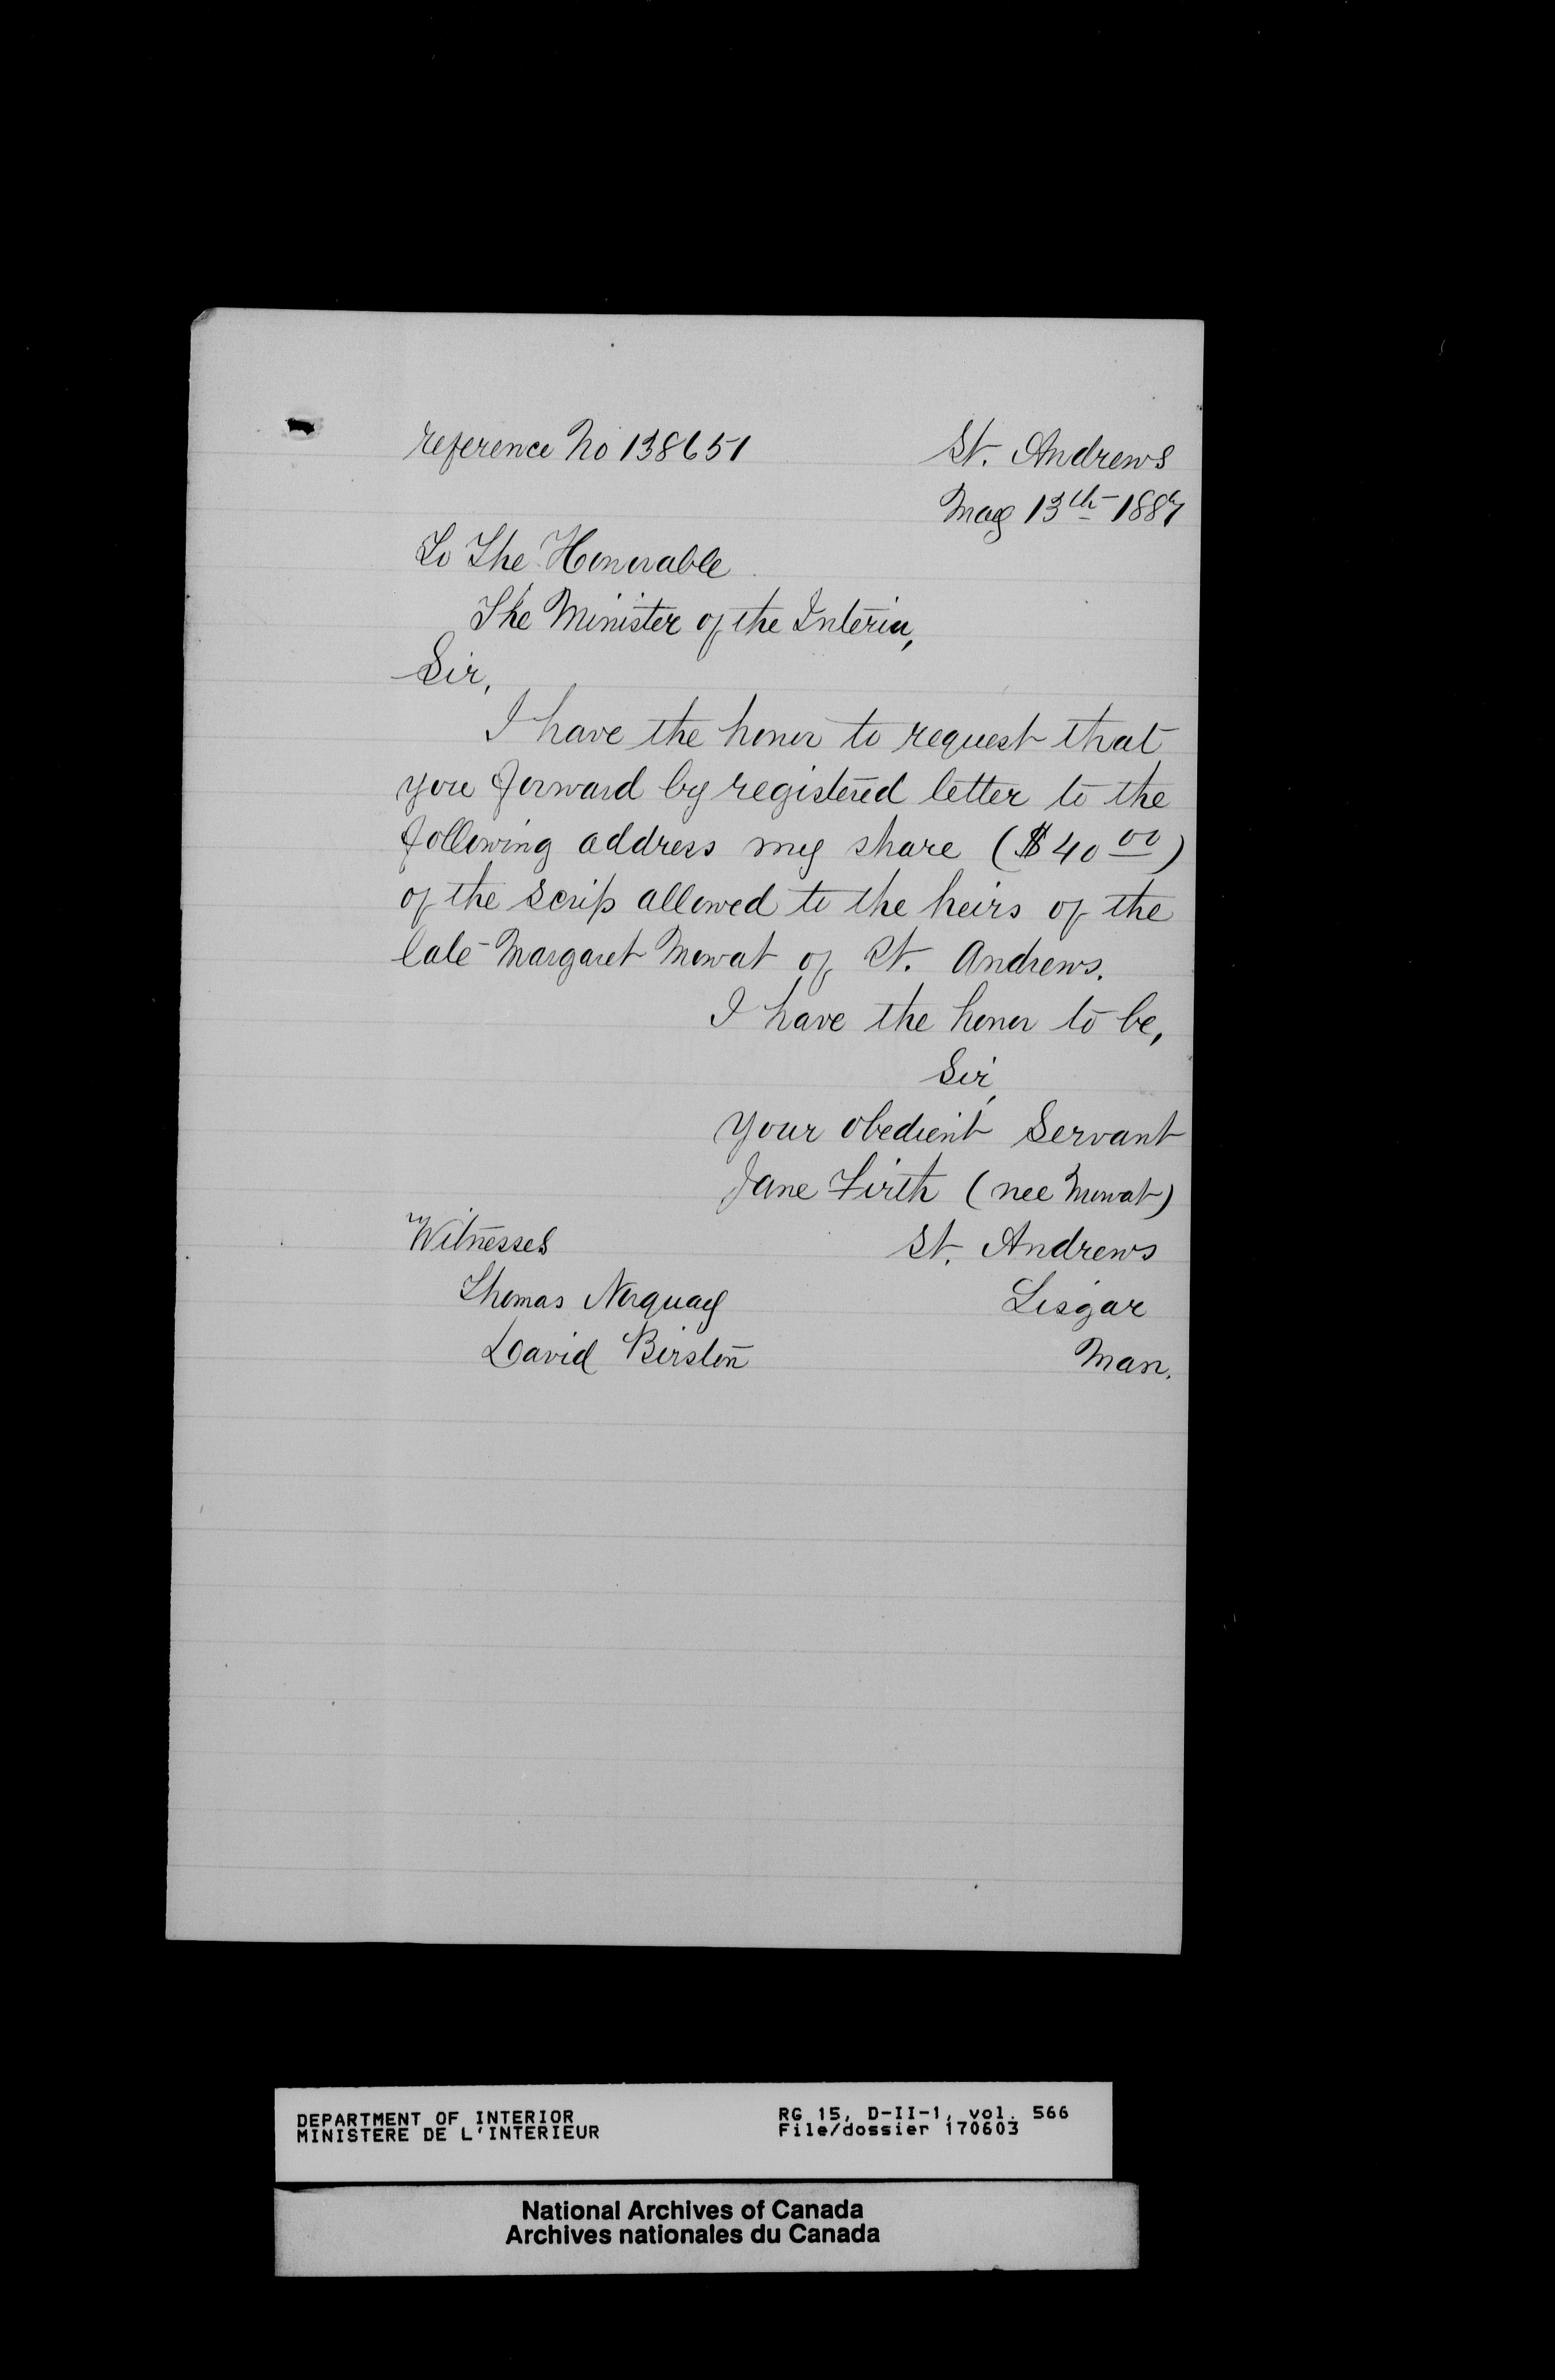 reference No 138651
St. Andrews
May 13th 1887
To The Honorable
The Minister of the Interior,
Sir,
I have the honor to request that
you forward by registered letter to the
following address my share ($40 00)
of the scrip allowed to the heirs of the
late Margaret Mowat of St. Andrews.
I have the honor to be,
Sir,
Your obedient Servant
Jane Firth (nee Mowat)
Witnesses
St. Andrews
Thomas Norquay
Lisgar
David Birston
Man.
DEPARTMENT OF INTERIOR
MINISTERE DE L'INTERIEUR
RG 15, D-II-1, vol. 566
File/dossier 170603
National Archives of Canada
Archives nationales du Canada